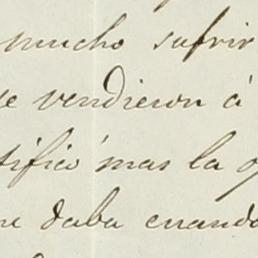 mucho sufrir
se vendieron á
tificó mas la
daba cuando